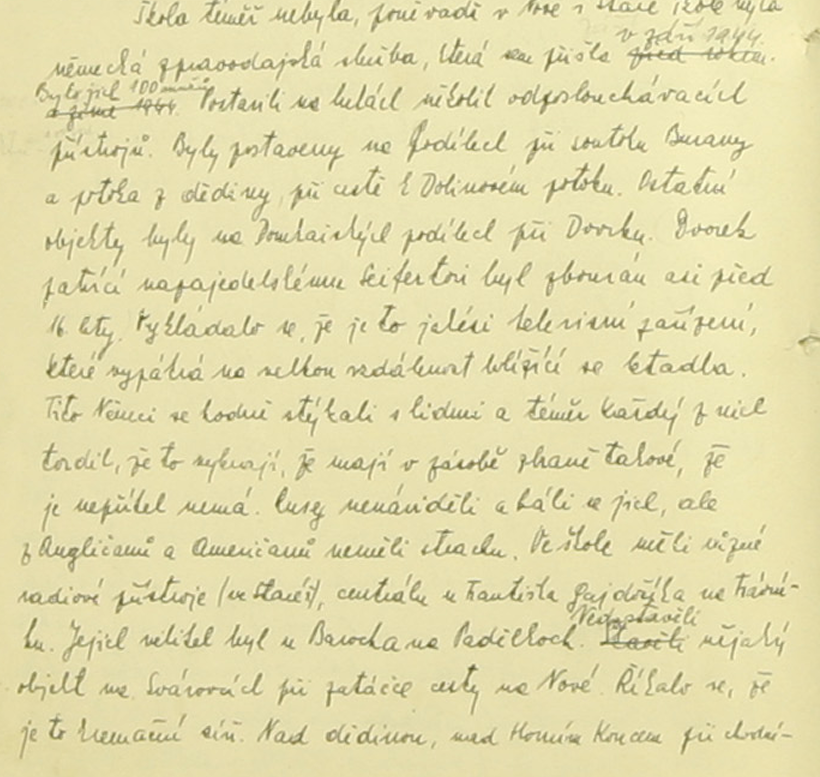 Škola téměř nebyla, poněvadž v Nové i staré škole byla
v září 1944
německá zpravodajská služba, která sem přišla před rokem.
Bylo jich 100 mužů
v zimě 1944. Postavili na kulách několik odposlouchávacích
přístrojů. Byly postaveny na Podílech při soutoku Burany
a potoka z dědiny, při cestě k Dolinovém potoku. Ostatní
objekty byly na podílech při Dvorku. Dvorek
patřící napajedelskému Seifertovi byl zbourán asi před
16 lety. Vykládalo se, že je to jakési televisní zařízení,
které vypátrá na velkou vzdálenost blížící se letadla.
Tito Němci se hodně stýkali s lidmi a téměř každý z nich
tvrdil, že to vyhrají, že mají v zásobě zbraně takové, že
je nepřítel nemá. Rusy nenáviděli a báli se jich, ale
z Angličanů a Američanů neměli strachu. Ve škole měli různé
radiové přístroje (ve staré), centrálu u Františka Gajdošíka na Trávní-
Nedostavěli
ku. Jejich velitel byl u Barocha na Padělkoch. Stavěli nějaký
objekt na Svárovcích při zatáčce cesty na Nové. Říkalo se, že
je to síň. Nad dědinou, nad Horním Koncem při chodní-